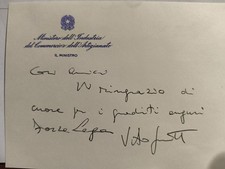 Ministero dell'Industria
del Commercio e dell'Artigianato
IL MINISTRO
Cari amici
Vi ringrazio di
cuore per i graditi auguri